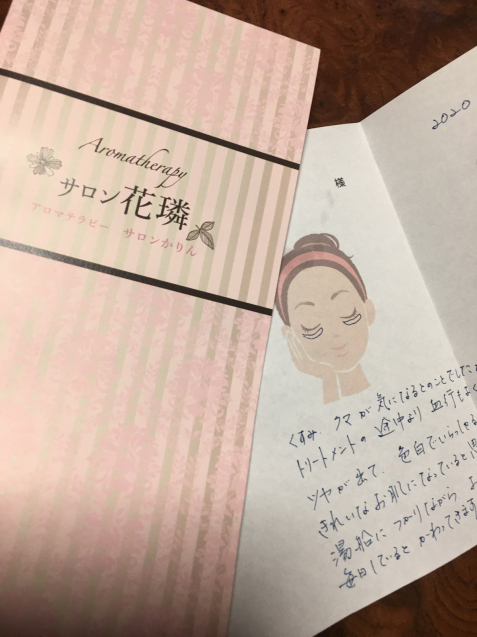 Aromatherapy
サロン花璘
アロマテラピー サロンかりん
2020
様
くすみ、クマが気になるとのことでした
トリートメントの途中より血行もよく
ツヤが出て、色白でいらっしゃる
きれいなお肌になっていると思
湯船につかりながら、お
毎日していると かわってきます